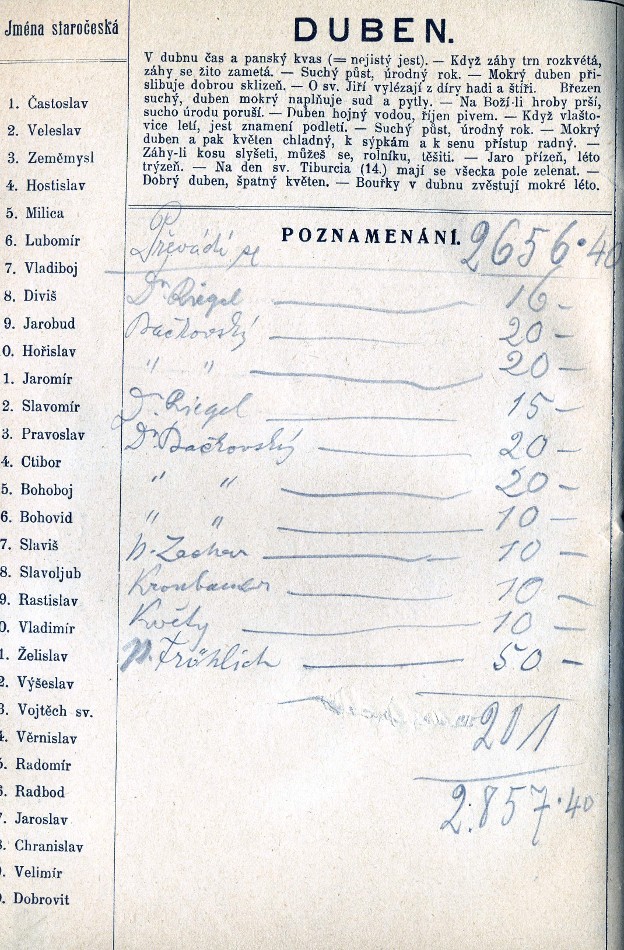 Jména staročeská
1. Častoslav
2. Veleslav
3. Zeměmysl
4. Hostislav
5. Milica
6. Lubomír
7. Vladiboj
8. Diviš
9. Jarobud
0. Hořislav
1. Jaromír
2. Slavomír
3. Pravoslav
4. Ctibor
5. Bohoboj
6. Bohovid
7. Slaviš
8. Slavoljub
9. Rastislav
0. Vladimír
1. Želislav
2. Výšeslav
3. Vojtěch sv.
4. Věrnislav
5. Radomír
6. Radbod
7. Jaroslav
8. Chranislav
9. Velimír
0. Dobrovit
DUBEN.
V dubnu čas a panský kvas (= nejistý jest). — Když záhy trn rozkvétá,
záhy se žito zametá. — Suchý půst, úrodný rok. — Mokrý duben při-
slibuje dobrou sklizeň. — O sv. Jiří vylézají z díry hadi a štíři. Březen
suchý, duben mokrý naplňuje sud a pytly. — Na Boží-li hroby prší,
sucho úrodu poruší. — Duben hojný vodou, říjen pivem. — Když vlašto-
vice letí, jest znamení podletí. — Suchý půst, úrodný rok. — Mokrý
duben a pak květen chladný, k sýpkám a k senu přístup radný. —
Záhy-li kosu slyšeti, můžeš se, rolníku, těšiti. — Jaro přízeň, léto
trýzeň. — Na den sv. Tiburcia (14.) mají se všecka pole zelenat. —
Dobrý duben, špatný květen. — Bouřky v dubnu zvěstují mokré léto.
POZNAMENÁNÍ.
Převádí se 2656·40
Dr. Riegel — 16 —
Bačkovský — 20 —
" " — 20 —
Dr. Riegel — 15 —
Dr. Bačkovský — 20 —
" " — 20 —
" " — 10 —
p. Zacher — 10 —
Kronbauer — 10 —
Květy — 10 —
p. Fröhlich — 50 —
201
2.857·40